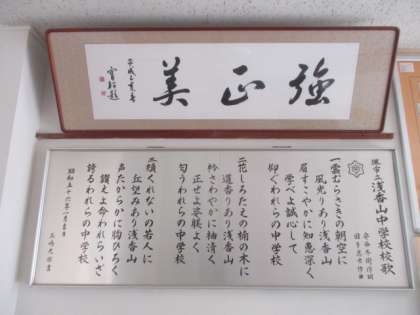 強正美
堺市立浅香山中学校校歌
一雲むらさきの朝空に
風光りあり浅香山
眉すこやかに知恵深く
学べよ誠心して
仰ぐわれらの中学校
二花しろたえの楠の木に
道香りあり浅香山
衿さわやかに袖清く
正せよ姿麗よく
匂うわれらの中学校
三頬くれないの若人に
丘望みあり浅香山
声たからかに胸ひろく
讃えよ命われらいざ
誇るわれらの中学校
昭和五十六年八月吉日